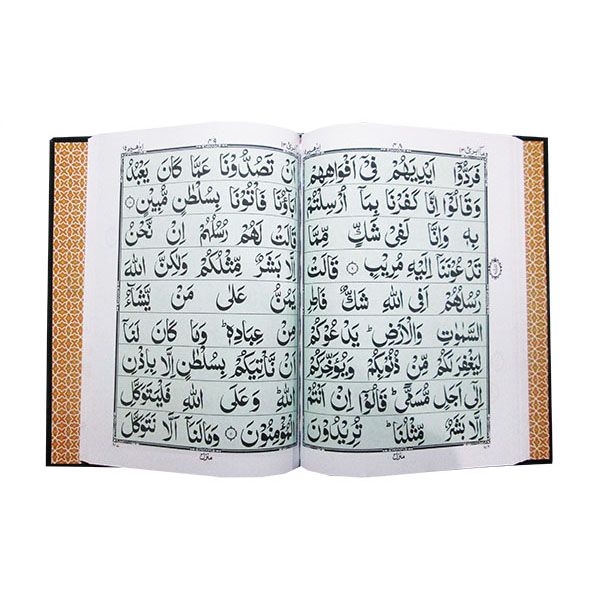 فَرَدُّوْۤا اَيْدِيَهُمْ فِىْۤ اَفْوَاهِهِمْ
وَقَالُوْۤا اِنَّا كَفَرْنَا بِمَاۤ اُرْسِلْتُمْ
بِهٖ وَاِنَّا لَفِىْ شَكٍّ مِّمَّا
تَدْعُوْنَنَاۤ اِلَيْهِ مُرِيْبٍ ۹ قَالَتْ
رُسُلُهُمْ اَفِى اللّٰهِ شَكٌّ فَاطِرِ
السَّمٰوٰتِ وَالْاَرْضِ ؕ يَدْعُوْكُمْ
لِيَغْفِرَ لَكُمْ مِّنْ ذُنُوْبِكُمْ وَيُؤَخِّرَكُمْ
اِلٰٓى اَجَلٍ مُّسَمًّى ؕ قَالُوْۤا اِنْ اَنْتُمْ
اِلَّا بَشَرٌ مِّثْلُنَا ؕ تُرِيْدُوْنَ
منزل
اَنْ تَصُدُّوْنَا عَمَّا كَانَ يَعْبُدُ
اٰبَآؤُنَا فَاْتُوْنَا بِسُلْطٰنٍ مُّبِيْنٍ ۱۰
قَالَتْ لَهُمْ رُسُلُهُمْ اِنْ نَّحْنُ
اِلَّا بَشَرٌ مِّثْلُكُمْ وَلٰكِنَّ اللّٰهَ
يَمُنُّ عَلٰى مَنْ يَّشَآءُ
مِنْ عِبَادِهٖ ؕ وَمَا كَانَ لَنَاۤ
اَنْ نَّاْتِيَكُمْ بِسُلْطٰنٍ اِلَّا بِاِذْنِ
اللّٰهِ ؕ وَعَلَى اللّٰهِ فَلْيَتَوَكَّلِ
الْمُؤْمِنُوْنَ ۱۱ وَمَا لَنَاۤ اَلَّا نَتَوَكَّلَ
منزل